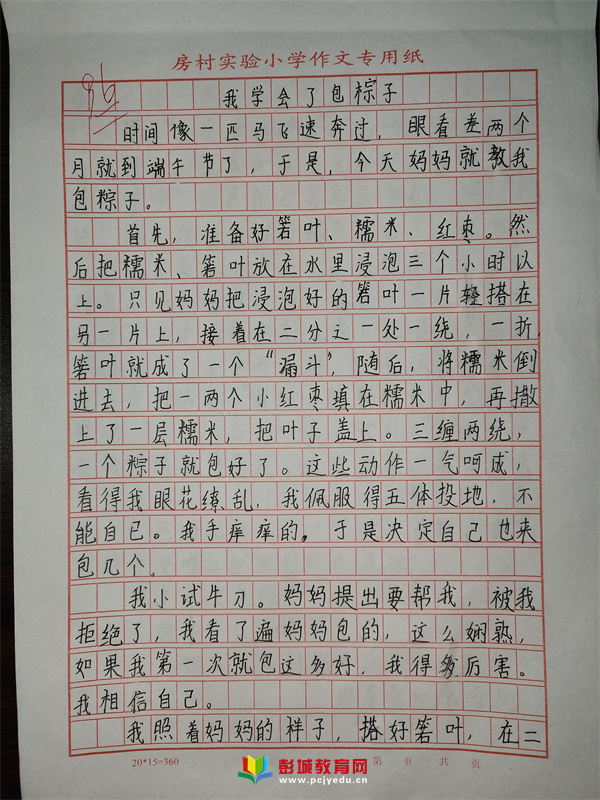 房村实验小学作文专用纸
96
我学会了包粽子
时间像一匹马飞速奔过，眼看差两个
月就到端午节了，于是，今天妈妈就教我
包粽子。
首先，准备好箬叶、糯米、红枣。然
后把糯米、箬叶放在水里浸泡三个小时以
上。只见妈妈把浸泡好的箬叶一片轻搭在
另一片上，接着在二分之一处一绕，一折，
箬叶就成了一个“漏斗”，随后，将糯米倒
进去，把一两个小红枣填在糯米中，再撒
上了一层糯米，把叶子盖上。三缠两绕，
一个粽子就包好了。这些动作一气呵成，
看得我眼花缭乱，我佩服得五体投地，不
能自已。我手痒痒的，于是决定自己也来
包几个。
我小试牛刀。妈妈提出要帮我，被我
拒绝了，我看了遍妈妈包的，这么娴熟，
如果我第一次就包这多好，我得多厉害。
我相信自己。
我照着妈妈的样子，搭好箬叶，在二
20*15=360
第 页 共 页
彭城教育网
www.pcjyedu.cn